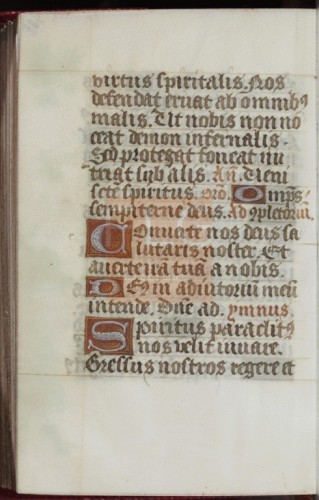 virtus spiritalis. Nos
defendat eruat ab omnibꝰ
malis. Vt nobis non no
ceat demon infernalis.
Sed protegat foueat nu
triat sub alis. An̄. Veni
sc̄te spiritus. Oro. Omp̄s
sempiterne deus. Ad ꝯpletoriū.
Conuerte nos deus sa
lutaris noster. Et
auerte ira tuā a nobis.
Deus in adiutoriū meū
intende. Dn̄e ad. ymnus.
Spiritus paraclitꝰ
nos velit iuuare.
Gressus nostros regere et